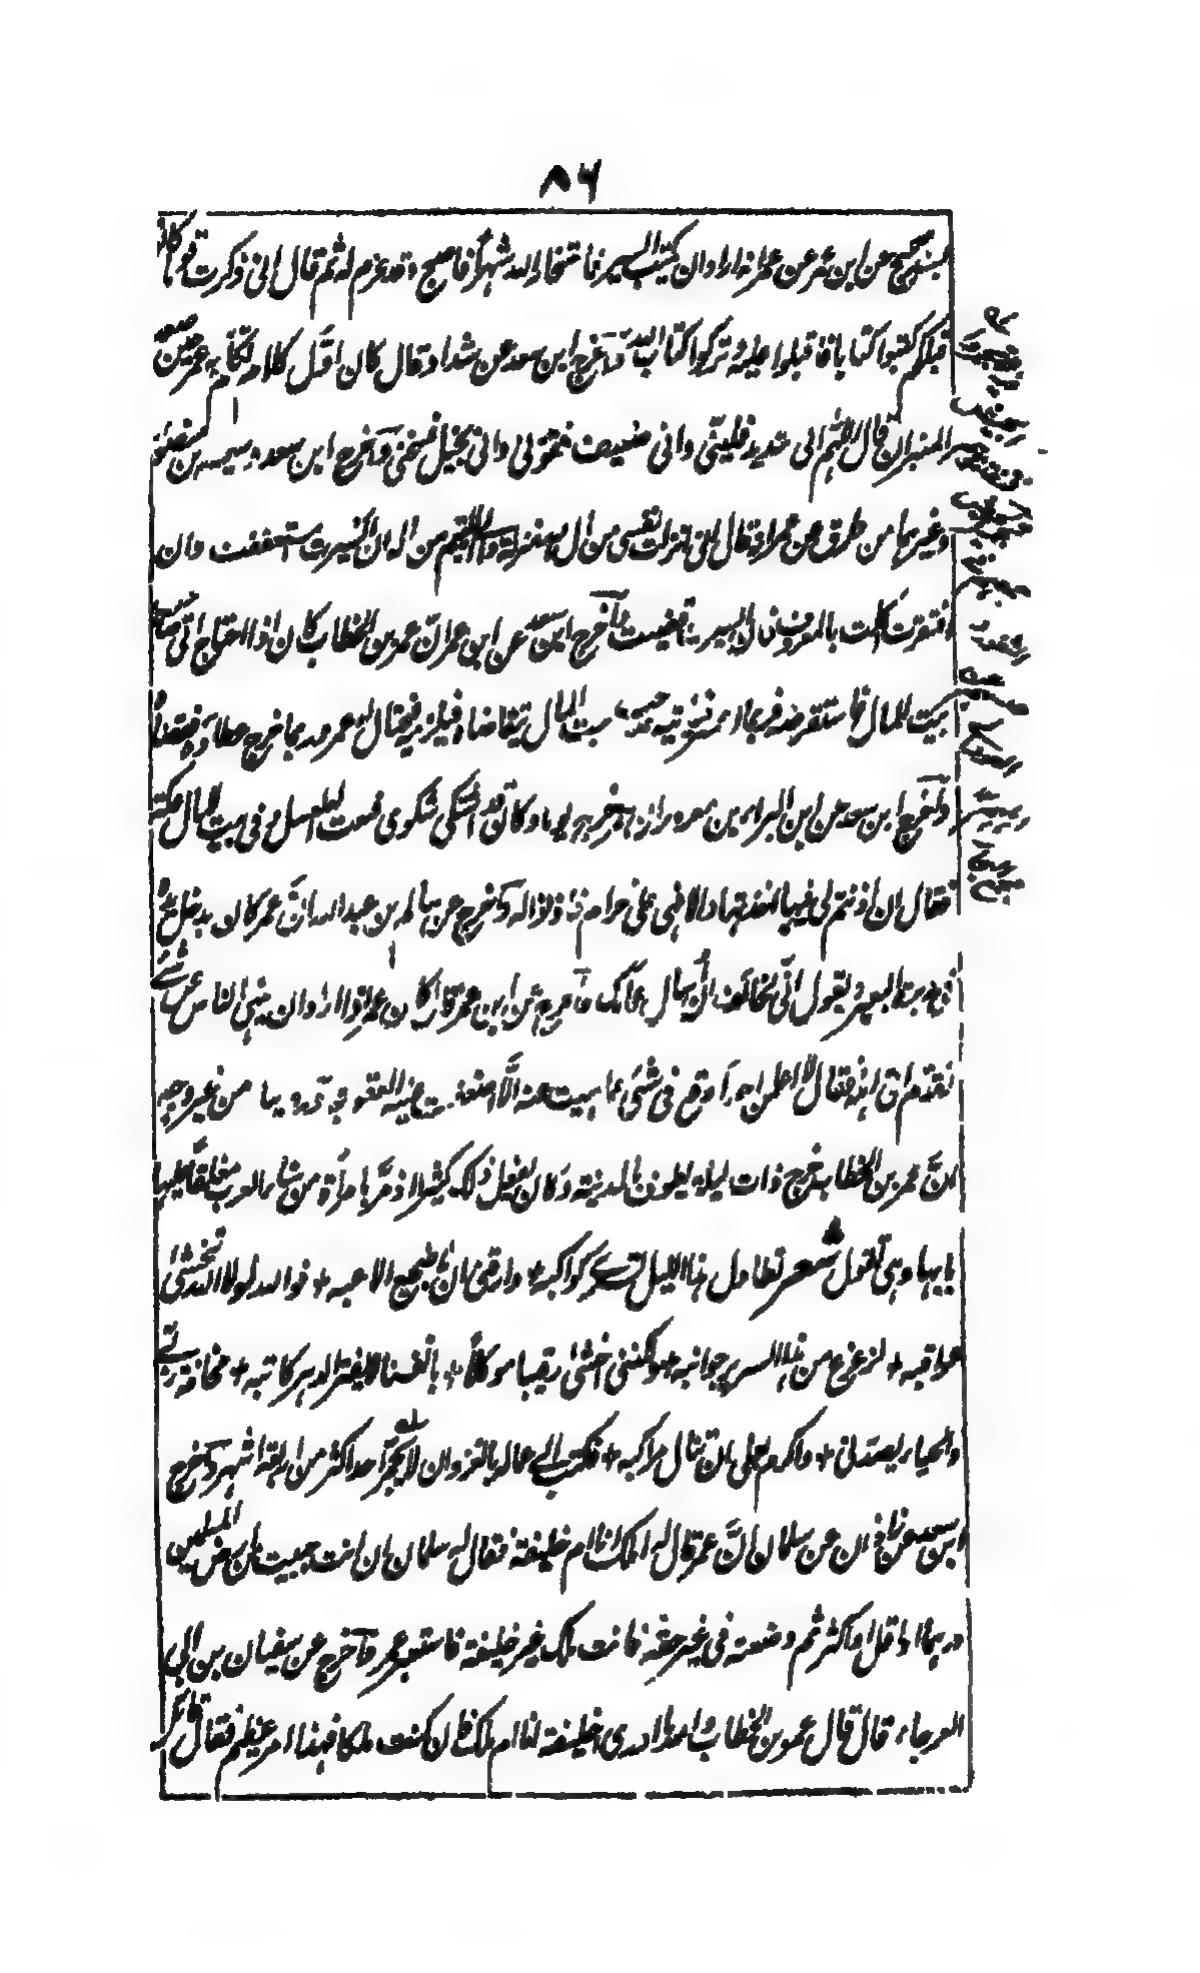 ٨٦
بسند صحيح عن ابن عمر عن عمر انه اراد ان يكتب السير فاستخار الله شهرا فاصبح وقد عزم له ثم قال انى ذكرت قوما كانوا
قبلكم كتبوا كتابا فاقبلوا عليه وتركوا كتاب الله واخرج ابن سعد عن شداد قال كان اول كلام تكلم به عمر حين صعد
المنبر ان قال اللهم انى شديد فلينى وانى ضعيف فقونى وانى بخيل فسخنى واخرج ابن سعد وسعيد بن منصور
وغيرهما من طرق عن عمر انه قال انى انزلت نفسى من مال الله منزلة والى اليتيم من ماله ان ايسرت استعففت وان
افتقرت اكلت بالمعروف فان ايسرت قضيت واخرج ابن سعد عن ابن عمر ان عمر بن الخطاب كان اذا احتاج اتى صاحب
بيت المال فاستقرضه فربما اعسر فياتيه صاحب بيت المال يتقاضاه فيلزمه فيحتال له عمر وربما خرج عطاؤه فقضاه
واخرج ابن سعد عن ابن البراء بن معرور ان عمر خرج يوما وكان قد اشتكى شكوى فنعت له العسل وفى بيت المال عكة
فقال ان اذنتم لى فيها اخذتها والا فهى على حرام فاذنوا له واخرج عن سالم بن عبد الله ان عمر كان يدخل يده
فى دبرة البعير ويقول انى لخائف ان اسال عما بك واخرج عن ابن عمر قال كان عمر اذا اراد ان ينهى الناس عن شئ
تقدم الى اهله فقال لا اعلمن احدا وقع فى شئ مما نهيت عنه الا اضعفت عليه العقوبة وروينا من غير وجه
ان عمر بن الخطاب خرج ذات ليلة يطوف بالمدينة وكان يفعل ذلك كثيرا اذ مر بامرأة من نساء العرب مغلقا عليها
بابها وهى تقول شعر تطاول هذا الليل تسرى كواكبه + وارقنى ان لا ضجيع الاعبه + فوالله لولا الله تخشى
عواقبه + لزعزع من هذا السرير جوانبه + ولكننى اخشى رقيبا موكلا + بانفسنا لا يفتر الدهر كاتبه + مخافة ربى
والحياء يصدنى + واكرم بعلى ان تنال مراكبه + فكتب الى عماله بالغزو ان لا يجمر احد اكثر من اربعة اشهر واخرج
ابن سعد عن زاذان عن سلمان ان عمر قال له املك انا ام خليفة فقال له سلمان ان انت جبيت من ارض المسلمين
درهما او اقل او اكثر ثم وضعته فى غير حقه فانت ملك غير خليفة فاستعبر عمر واخرج عن سفيان بن ابى
العرجاء قال قال عمر بن الخطاب والله ما ادرى اخليفة انا ام ملك فان كنت ملكا فهذا امر عظيم فقال قائل